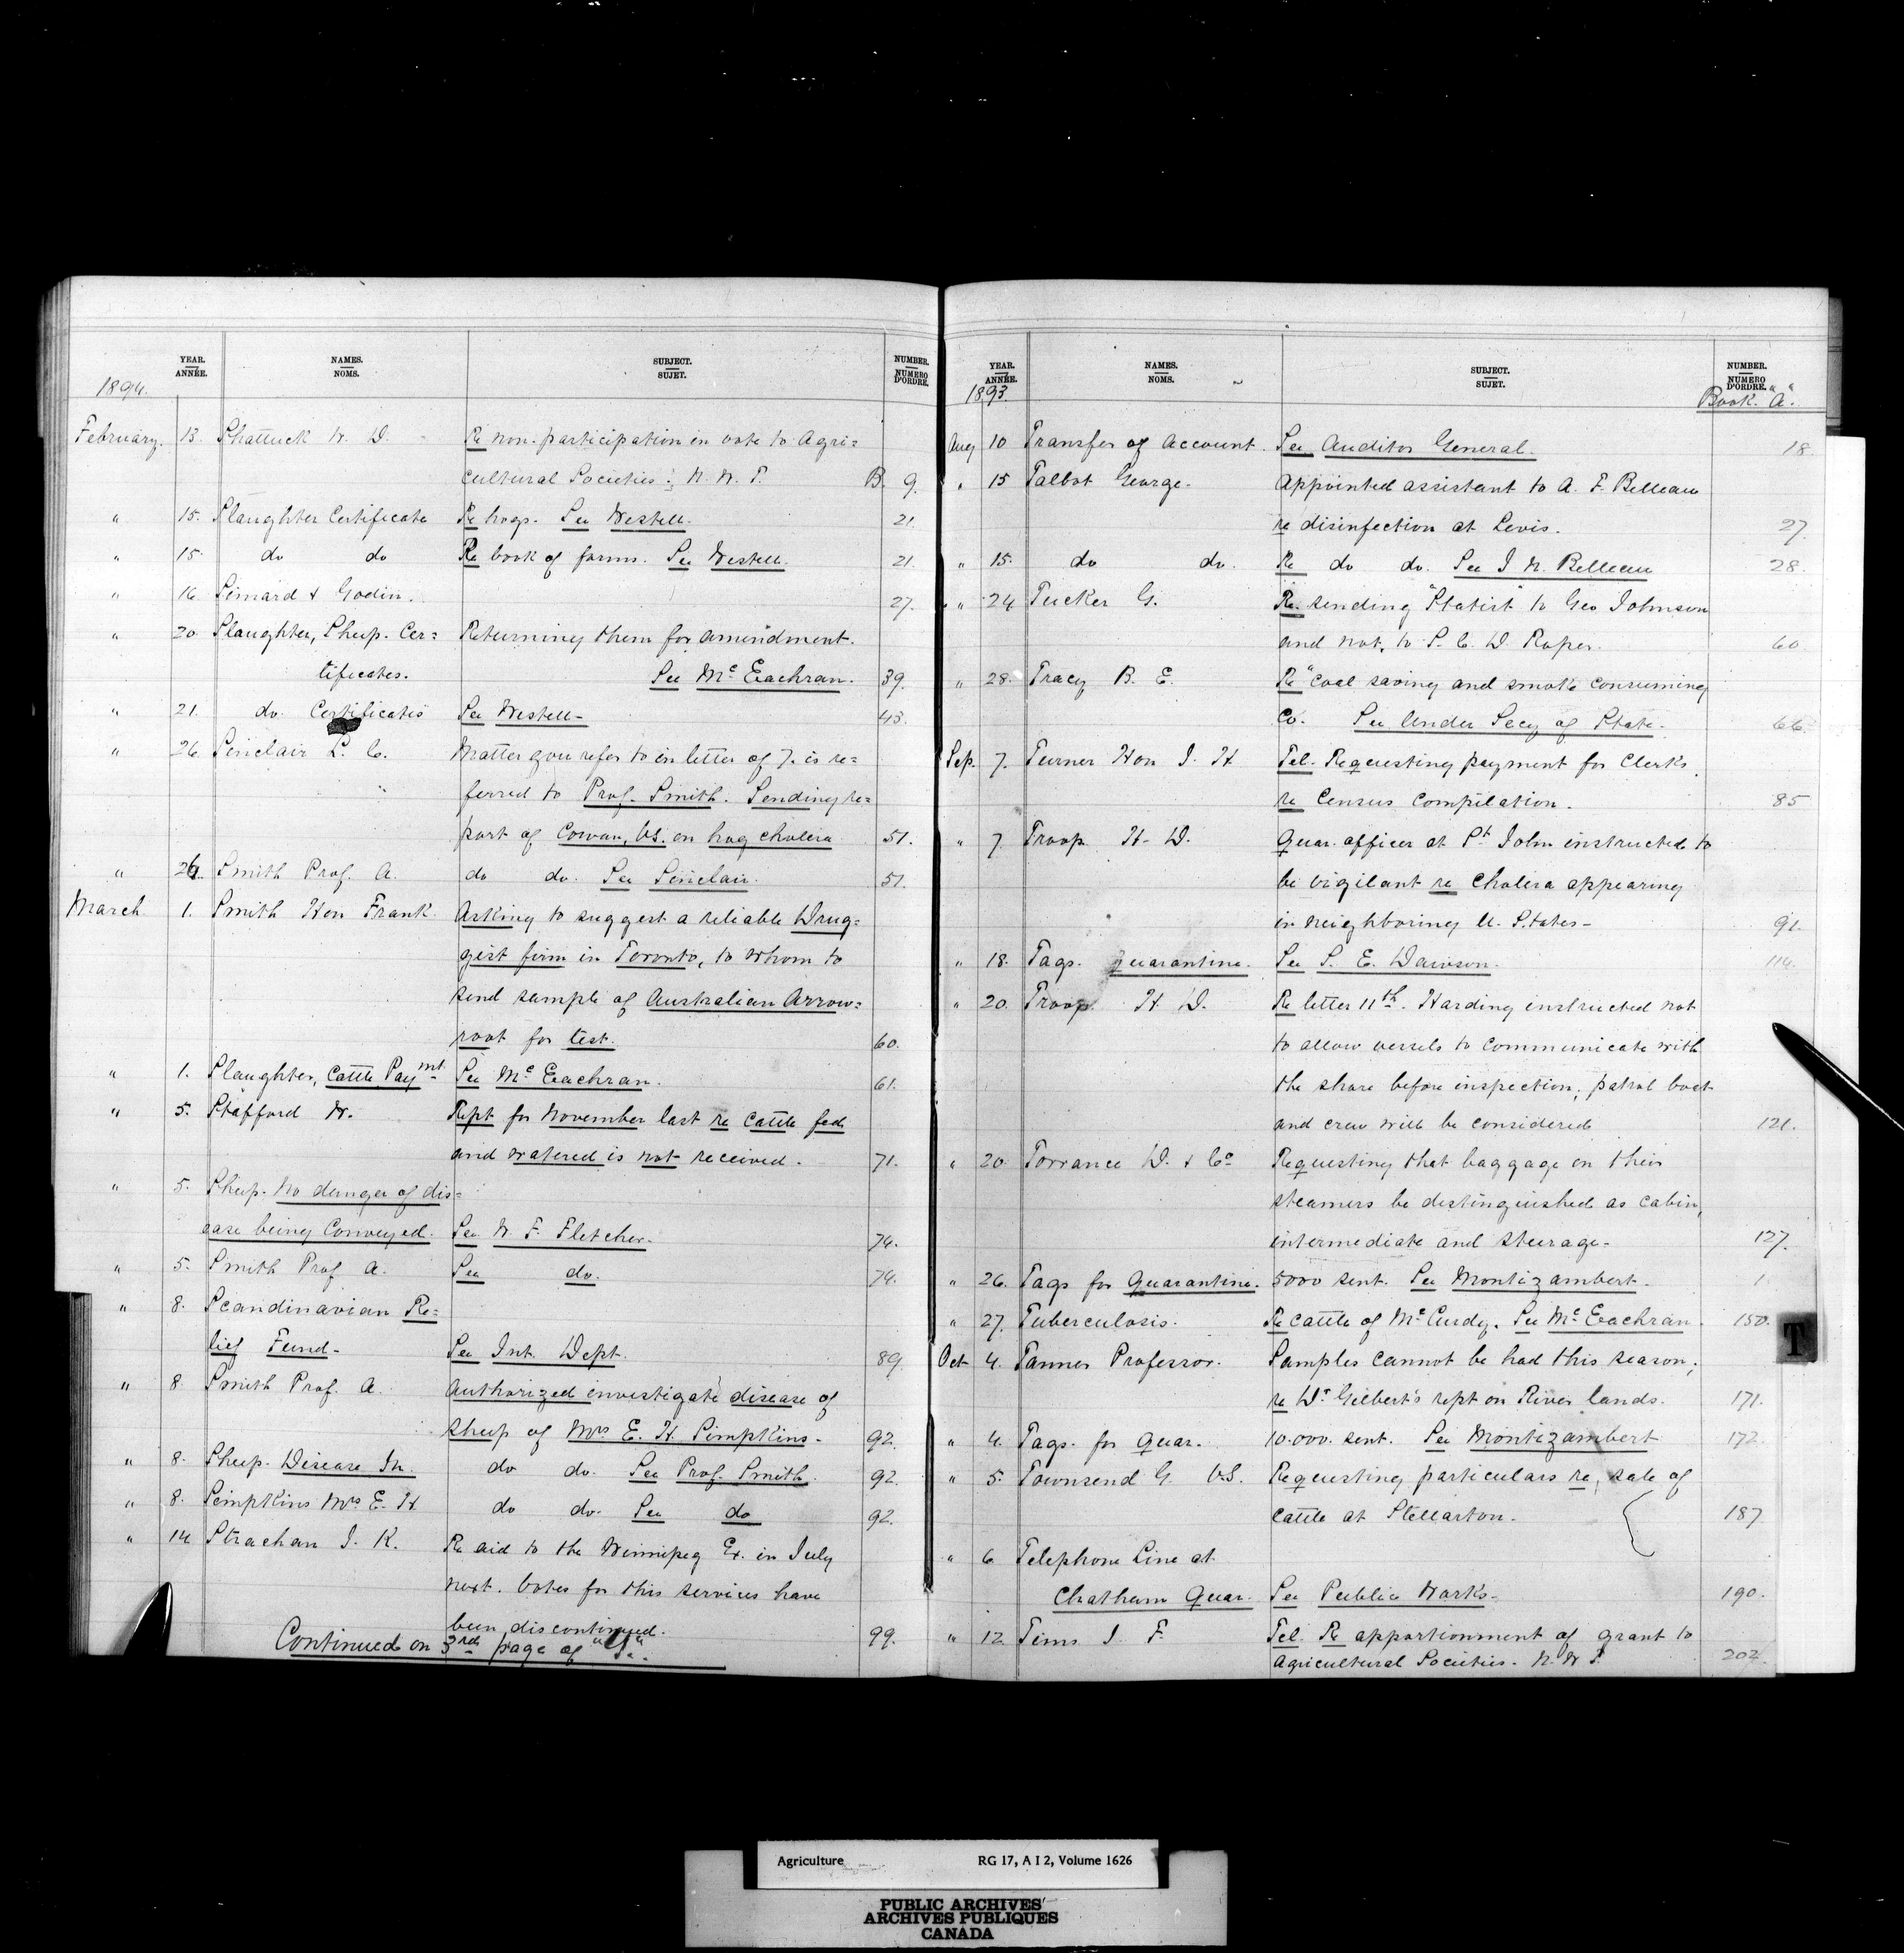 YEAR. ANNÉE. NAMES. NOMS. SUBJECT. SUJET. NUMBER. NUMERO D'ORDRE.
1894.
February. 13. Shattuck W. D. Re non-participation in vote to Agri=
cultural Societies; N. W. T. B. 9.
" 15. Slaughter Certificate Re hogs. See Westell. 21.
" 15. do do Re book of forms. See Westell. 21.
" 16. Simard & Godin. 27.
" 20. Slaughter, Sheep. Cer= Returning them for amendment.
tificates. See McEachran. 39.
" 21. do. Certificates See Westell- 43.
" 26. Sinclair L. C. Matter you refer to in letter of 7. is re=
ferred to Prof. Smith. Sending re=
port of Cowan, VS. on hog cholera 51.
" 26. Smith Prof. A. do do. See Sinclair. 51.
March 1. Smith Hon Frank. Asking to suggest a reliable Drug=
gist firm in Toronto, to whom to
send sample of Australian Arrow=
root for test. 60.
" 1. Slaughter, Cattle Paymt. See McEachran. 61.
" 5. Stafford W. Rept for November last re cattle fed
and watered is not received. 71.
" 5. Sheep. No danger of dis=
ease being Conveyed. See W. F. Fletcher. 74.
" 5. Smith Prof A. See do. 74.
" 8. Scandinavian Re=
lief Fund- See Int. Dept. 89.
" 8. Smith Prof. A. Authorized investigate disease of
sheep of Mrs E. H. Simpkins- 92.
" 8. Sheep. Disease In. do do. See Prof. Smith. 92.
" 8. Simpkins Mrs E. H. do do. See do 92.
" 14 Strachan J. K. Re aid to the Winnipeg Ex. in July
next. Votes for this services have
been discontinued. 99.
Continued on 3rd page of "Y."
YEAR. ANNÉE. NAMES. NOMS. SUBJECT. SUJET. NUMBER. NUMERO D'ORDRE.
1893. Book. "A".
Aug 10 Transfer of Account. See Auditor General. 18
" 15 Talbot George. Appointed assistant to A. F. Belleau
re disinfection at Levis. 27.
" 15. do do. Re do do. See J N. Belleau 28.
" 24 Tucker G. Re. sending "Statist" to Geo Johnson
and not, to S. C. D. Roper. 60
" 28. Tracy B. E. Re "Coal saving and smoke consuming
Co. See Under Secy of State. 66.
Sep. 7. Turner Hon J. H Tel. Requesting payment for Clerks
re Census Compilation. 85
" 7 Troop H. D. Quar. officer at St John instructed to
be vigilant re Cholera appearing
in neighboring U. States- 91.
" 18. Tags. Quarantine. See S. E. Dawson. 114.
" 20. Troop H D. Re letter 11th. Harding instructed not
to allow vessels to communicate with
the shore before inspection; patrol boat
and crew will be considered 121.
" 20 Torrance D. & Co Requesting that baggage on their
steamers be distinguished as cabin,
intermediate and steerage- 127.
" 26. Tags for Quarantine. 5000 sent. See Montizambert. 1
" 27. Tuberculosis. Re cattle of McCurdy. See McEachran. 150.
Oct 4. Tanner Professor. Samples cannot be had this season;
re Dr Gilbert's rept on River lands. 171.
" 4. Tags. for Quar. 10.000. sent. See Montizambert 172.
" 5. Townsend G. VS. Requesting particulars re, sale of
cattle at Stellarton. 187
" 6 Telephone Line at
Chatham Quar. See Public Works- 190.
" 12 Tims J. F. Tel. Re apportionment of grant to
Agricultural Societies. N. W T. 202.
T
Agriculture RG 17, A I 2, Volume 1626
PUBLIC ARCHIVES
ARCHIVES PUBLIQUES
CANADA